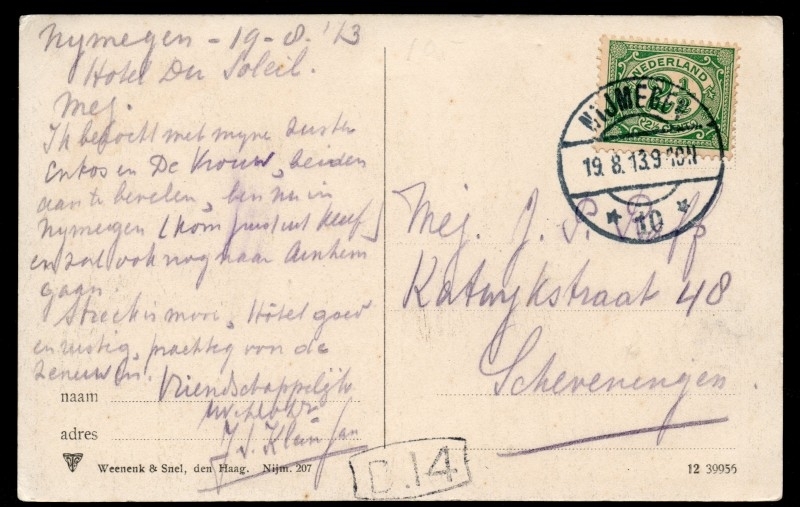 Nymegen - 19-8. '13
Hotel Du Soleil.
Mej.
Ik bezocht met myne zuster
en De Vrouw, beiden
aan te bevelen, ben nu in
Nymegen (kom juist uit Kleef)
en zal ook nog naar Arnhem
gaan
Streek is mooi, Hôtel goed
en rustig, prachtig von de
zenuwen.
naam Vriendschappelijk
adres J. J. Klein
Weenenk & Snel, den Haag. Nijm. 207
D.14
NEDERLAND
2½
NIJMEGEN 1
19. 8. 13. 9-10N
* 10 *
Mej. J. P.
Katwykstraat 48
Scheveningen
12 39956